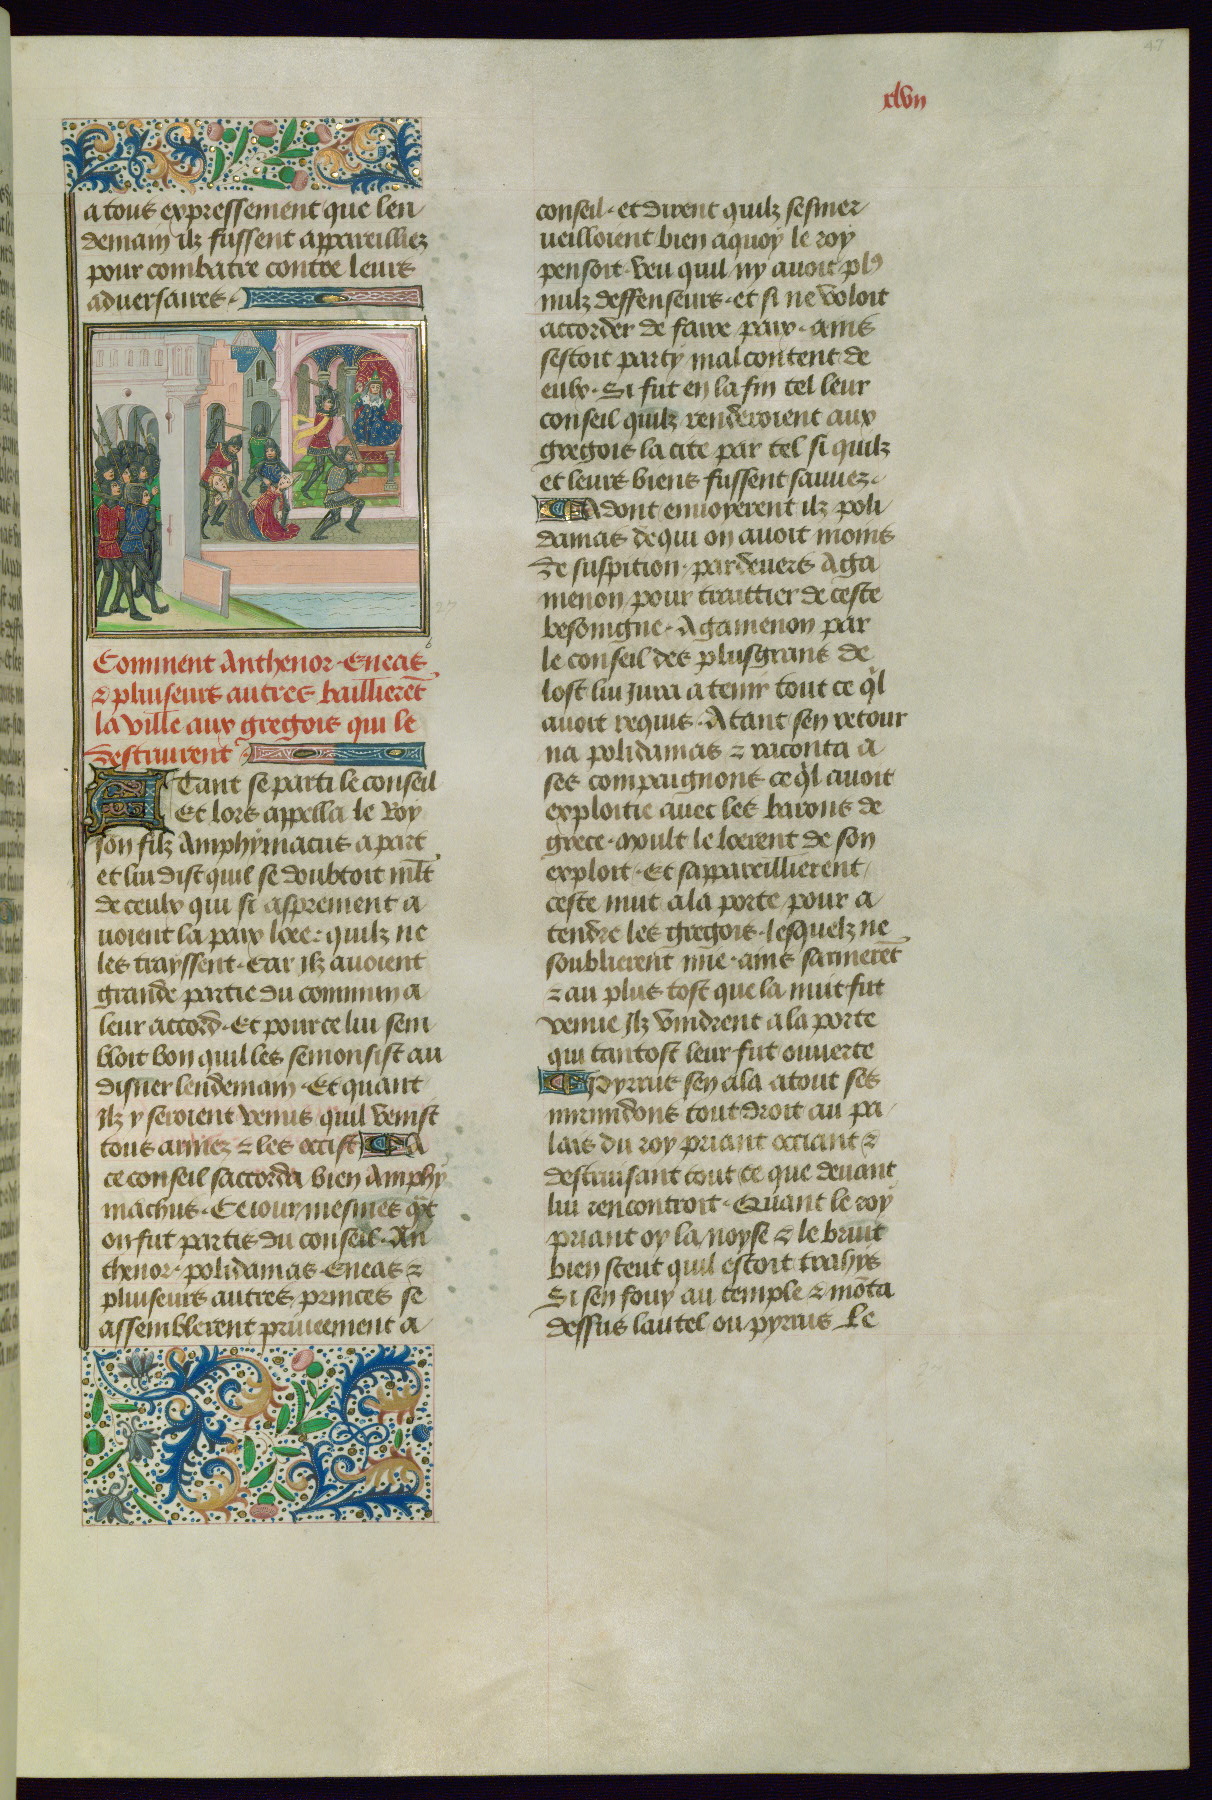 47
xlvii
a tous expressement que len
demain ilz fussent appareilliez
pour combatre contre leurs
adversaires
Comment Anthenor Eneas
et pluiseurs autres baillieret
la ville aux gregois qui le
destruirent
A Tant se parti le conseil
Et lors appella le Roy
son filz Amphymacus a part
et lui dist quil se doubtoit mlt
de ceulx qui si asprement a
voient la paix loee quilz ne
les trayssent Car ilz avoient
grande partie du commun a
leur accord Et pour ce lui sem
bloit bon quil les semonsist au
disner lendemain Et quant
ilz y seroient venus quil venist
tous armez et les occist A
ce conseil saccorda bien Amphy
machus Ce iour mesmes qt
on fut partis du conseil An
thenor polidamas Eneas et
pluiseurs autres princes se
assemblerent priveement a
conseil et dirent quilz sesmer
veilloient bien a quoy le roy
pensoit veu quil ny avoit pl9
nulz deffenseurs et si ne voloit
accorder de faire paix ains
sestoit party mal content de
eulx Si fut en la fin tel leur
conseil quilz renderoient aux
gregois la cite par tel si quilz
et leurs biens fussent sauvez
Adont envoyerent ilz poli
damas de qui on avoit moins
de suspition pardevers Aga
menon pour traittier de ceste
besoingne Agamenon par
le conseil des plus grans de
lost lui jura a tenir tout ce ql
avoit requis Atant sen retour
na polidamas et raconta a
ses compaignons ce ql avoit
exploitie avec les barons de
grece Moult le loerent de son
exploit Et sappareillierent
ceste nuit a la porte pour a
tendre les gregois lesquelz ne
soublierent mie ains sarmeret
et au plus tost que la nuit fut
venue ilz vindrent a la porte
qui tantost leur fut ouverte
Pyrrus sen ala atout ses
mirmidons tout droit au pa
lais du roy priant occiant et
destruisant tout ce que devant
lui rencontroit Quant le roy
priant oy la noyse et le bruit
bien sceut quil estoit trahys
Si sen fouy au temple et mota
dessus lautel ou pyrrus Le